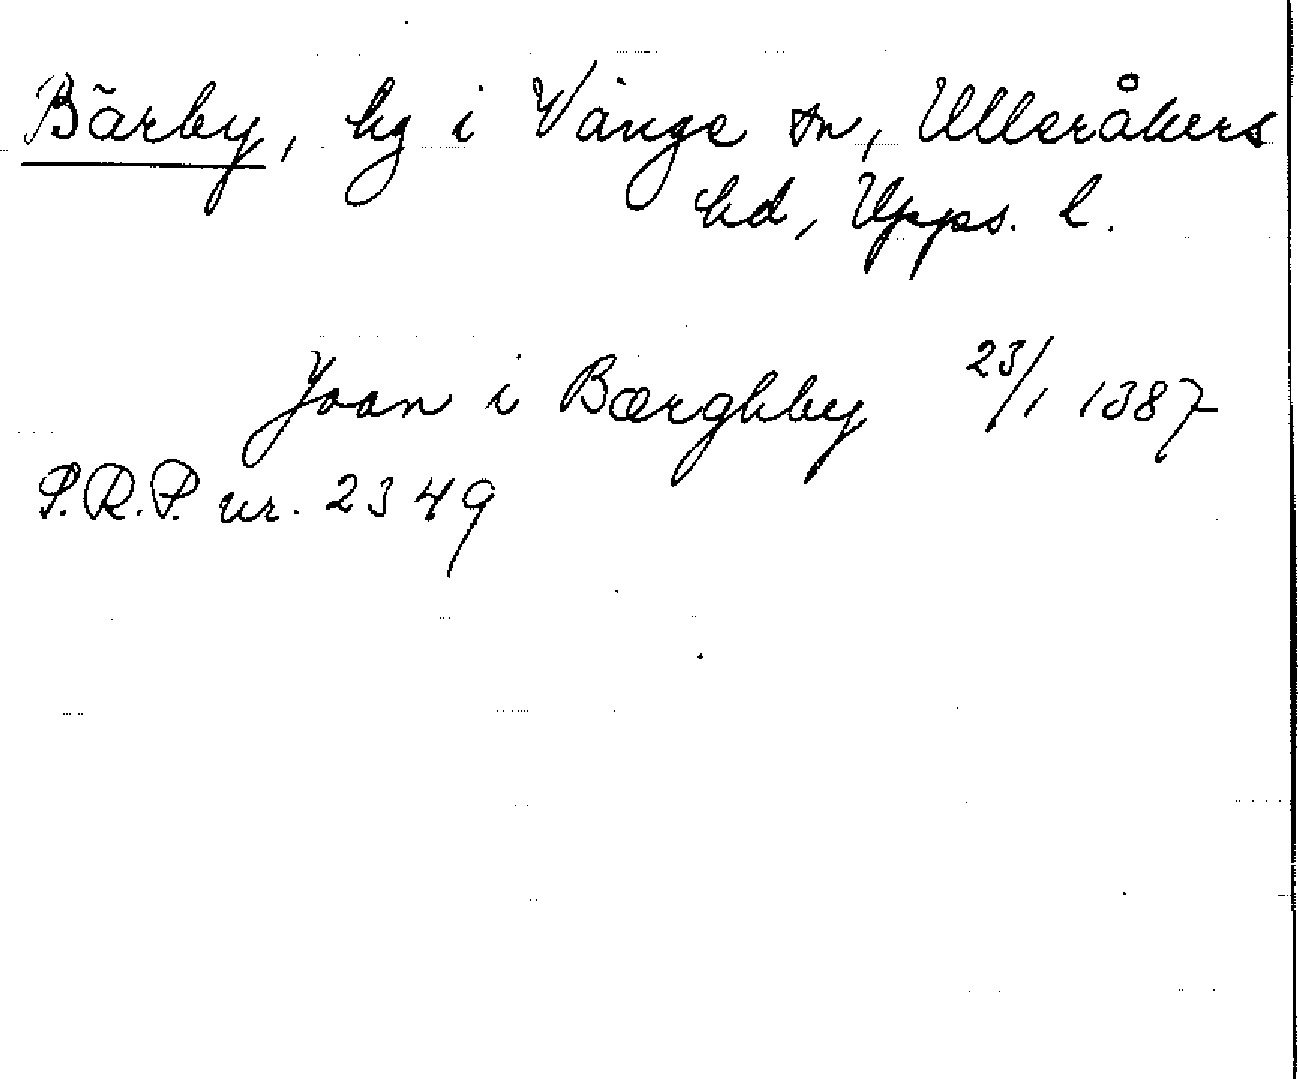 Bärby, hg i Vänge sn, Ulleråkers
hd, Upps. l.
Joan i Bærghby 23/1 1387
S.R.P. nr. 2349